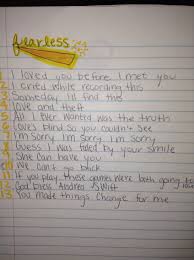 fearless
1 I loved you before I met you
2 I cried while recording this
3 Someday I'll find this
4 love and theft
5 All I Ever Wanted was the truth
6 Love's blind So you couldn't See
7 I'm Sorry I'm sorry I'm sorry
8 Guess I was fooled by your smile
9 She Can have you
10 We Can't go back
11 If you play these games We're both going to lose
12 God bless Andrea Swift
13 You made things Change for me